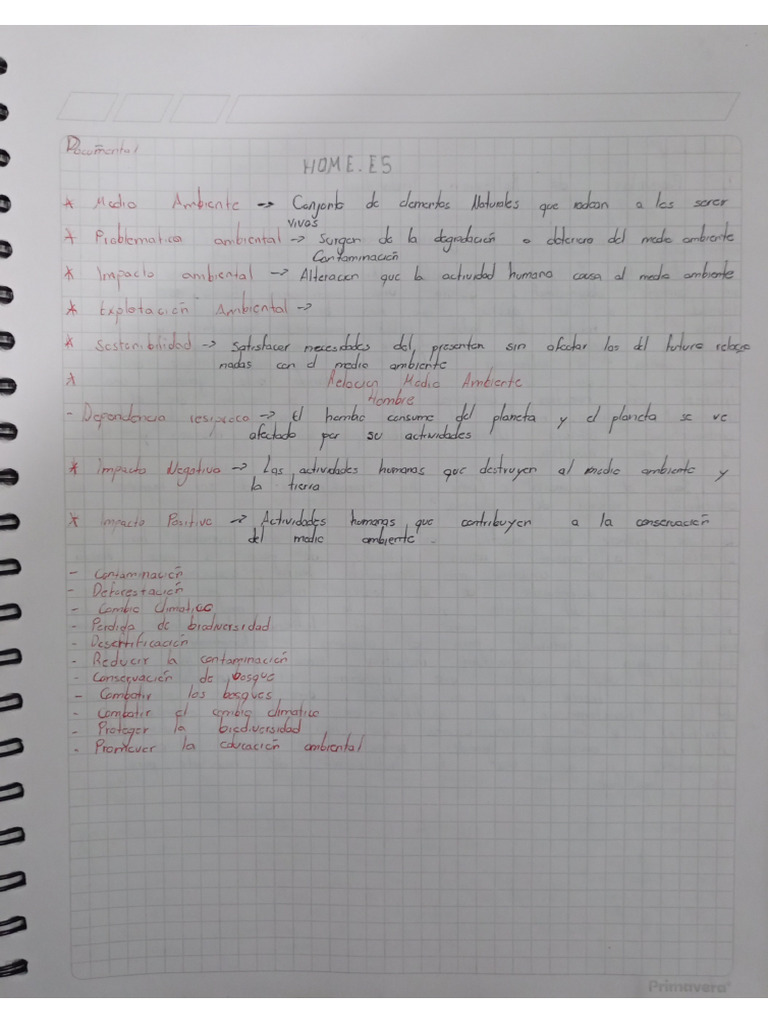 Documental
HOME.ES
* Medio Ambiente -> Conjunto de elementos Naturales que rodean a los seres
vivos
* Problematica ambiental -> Surgen de la degradación o deterioro del medio ambiente
Contaminación
* Impacto ambiental -> Alteracion que la actividad humana causa al medio ambiente
* Explotación Ambiental ->
* Sostenibilidad -> Satisfacer necesidades del presenten sin afectar las del futuro relacio
nadas con el medio ambiente
* Relacion Medio Ambiente
Hombre
- Dependencia resiproco -> El hombre consume del planeta y el planeta se ve
afectado por su actividades
* Impacto Negativo -> Las actividades humanas que destruyen al medio ambiente y
la tierra
* Impacto Positivo -> Actividades humanas que contribuyen a la conservación
del medio ambiente.
- Contaminación
- Deforestación
- Cambio climatico
- Perdida de biodiversidad
- Desertificación
- Reducir la contaminación
- Conservación de bosque
- Combatir los bosques
- Combatir el cambio climatico
- Proteger la biodiversidad
- Promover la educación ambiental
Primavera